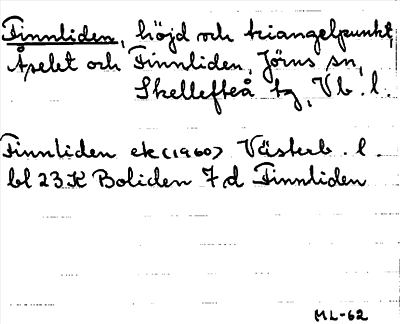 Finnliden, höjd och triangelpunkt,
Åselet och Finnliden, Jörns sn,
Skellefteå tg, Vb. l.
Finnliden ek (1960) Västerb. l.
bl 23 K Boliden 7 d Finnliden
ML-62